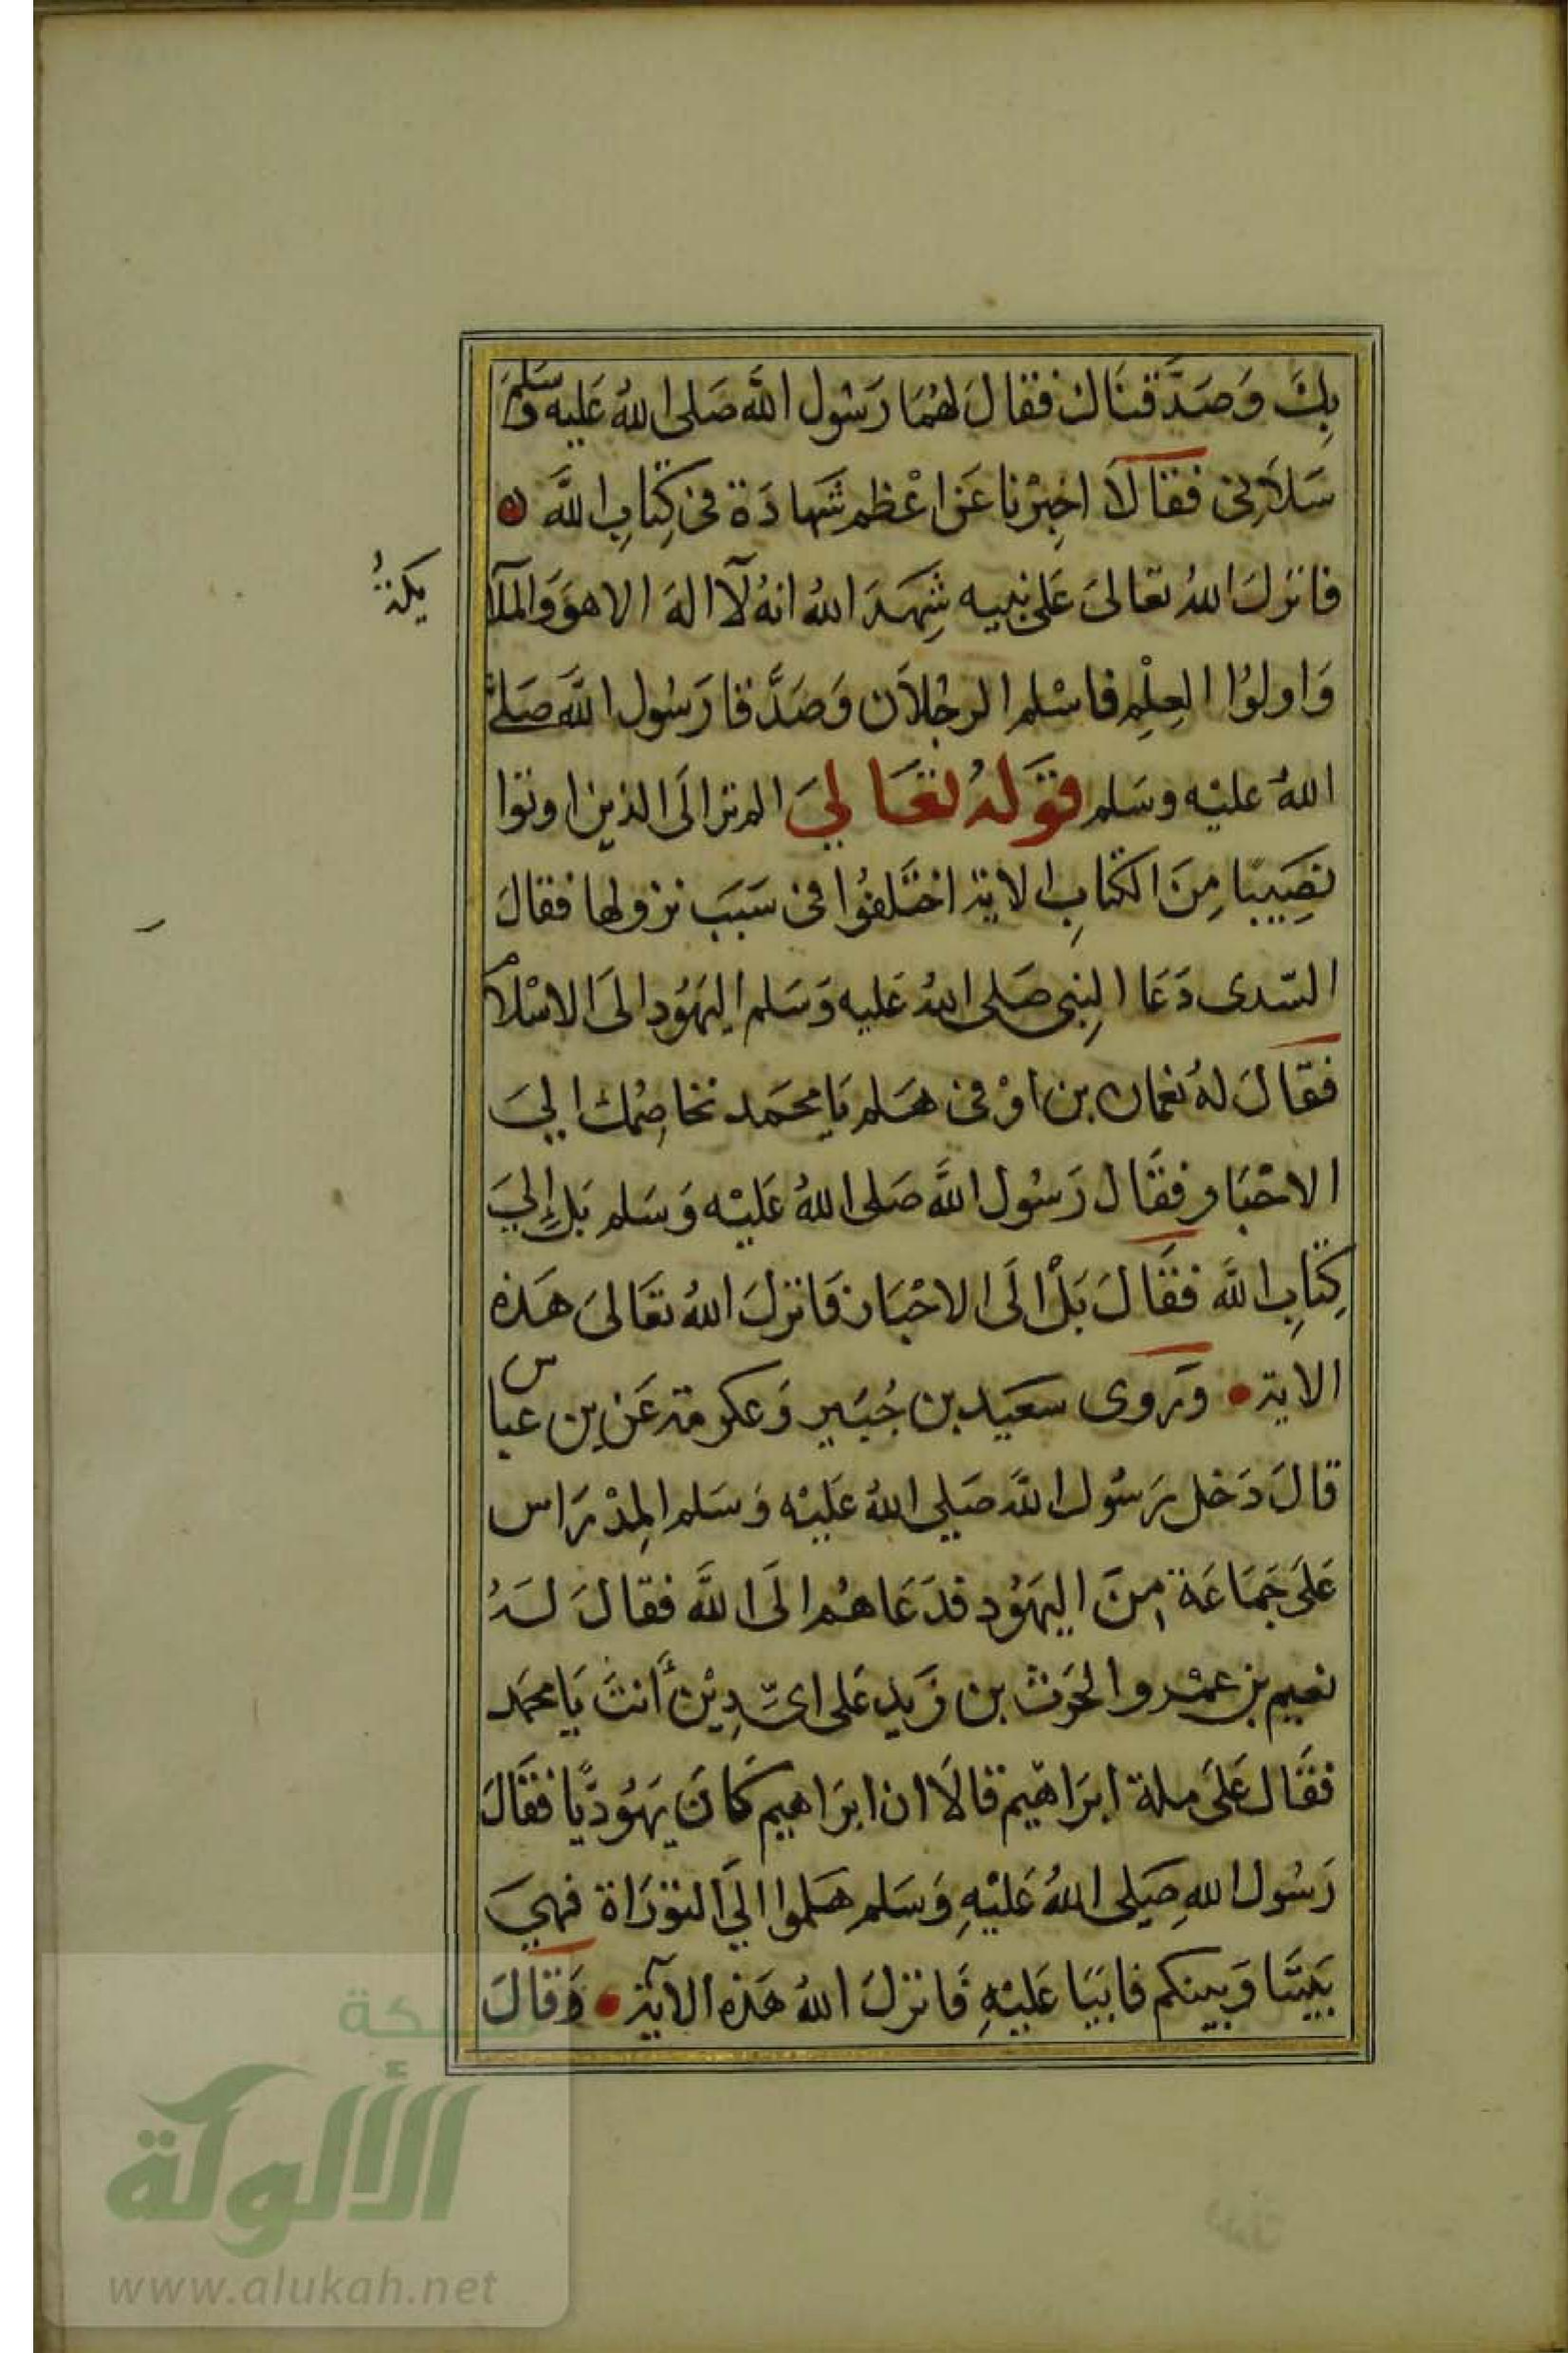 بِكَ وَصَدَّقنَاك فقالَ لهُمَا رَسُول اللَّه صَلى اللهُ عَليه وسَلم
سَلاَنِى فقالاَ اخبِرْنا عَن اعْظم شَهادَة فى كِتابِ اللَّه
فانزلَ اللهُ تعالىَ عَلى نبيه شَهِدَ اللهُ انهُ لآ اله الا هوَ وَالملآ
يكةُ
وَاولوُا العِلْمِ فاسْلم الرجُلاَن وَصَدَّقا رَسُول اللَّه صَلى
اللهُ عليْه وسَلم قوَلهُ تعَالىَ الم تر الَى الذين اوتوا
نصِيبًا مِنَ الكتابِ الاية اختَلفوُا فى سَبَبَ نزولها فقالَ
السّدى دَعَا النِبى صَلى اللهُ عَليه وَسَلم اليهَوُد الىَ الاسْلام
فقالَ لهُ نعمان بن اوْفى هَلم يَا محمَد نخاصِمُك الىَ
الاحْبَار فقَال رَسُول اللَّه صَلى اللهُ عَليْه وَسَلم بَل إِلىَ
كِتَابِ اللَّه فقَالَ بَلْ الَى الاحْبَار فَانزلَ اللهُ تعَالىَ هَذه
الاية وَروى سَعَيد بن جُبَير وَعكرمة عَن بن عباس
قالَ دَخل رَسُول اللَّه صَلى اللهُ عَليْه وَسَلم المِدْرَاس
عَلىَ جَمَاعَة مِنَ اليهَوُد فدَعَاهُم الَى اللَّه فقالَ لهُ
نعيم بن عمْرو والحَرث بن زَيد عَلى اىّ دِيْن أَنتَ يَا محَمد
فقَال عَلىَ ملة ابرَاهيم قالاَ ان ابرَاهيم كانَ يهَوُديًّا فقَالَ
رَسُول اللهِ صَلى اللهُ عَليْهِ وَسَلم هَلموا الَى التوَرَاة فهىَ
بَينَنَا وَبينكم فابَيَا عَليْهِ فَانزلَ اللهُ هَذه الآية وَقالَ
شبكة
الألوكة
www.alukah.net